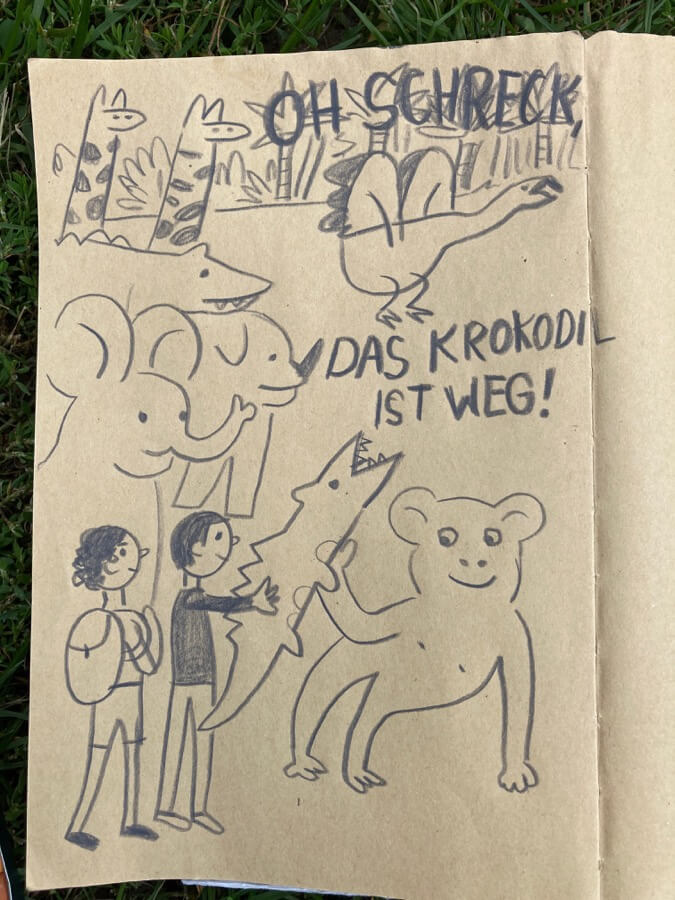 OH SCHRECK,
DAS KROKODIL
IST WEG!